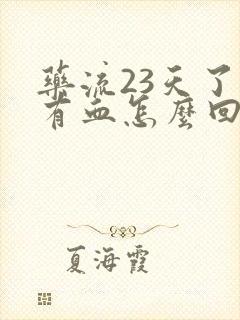 药流23天了
有血怎麽回
夏海霞